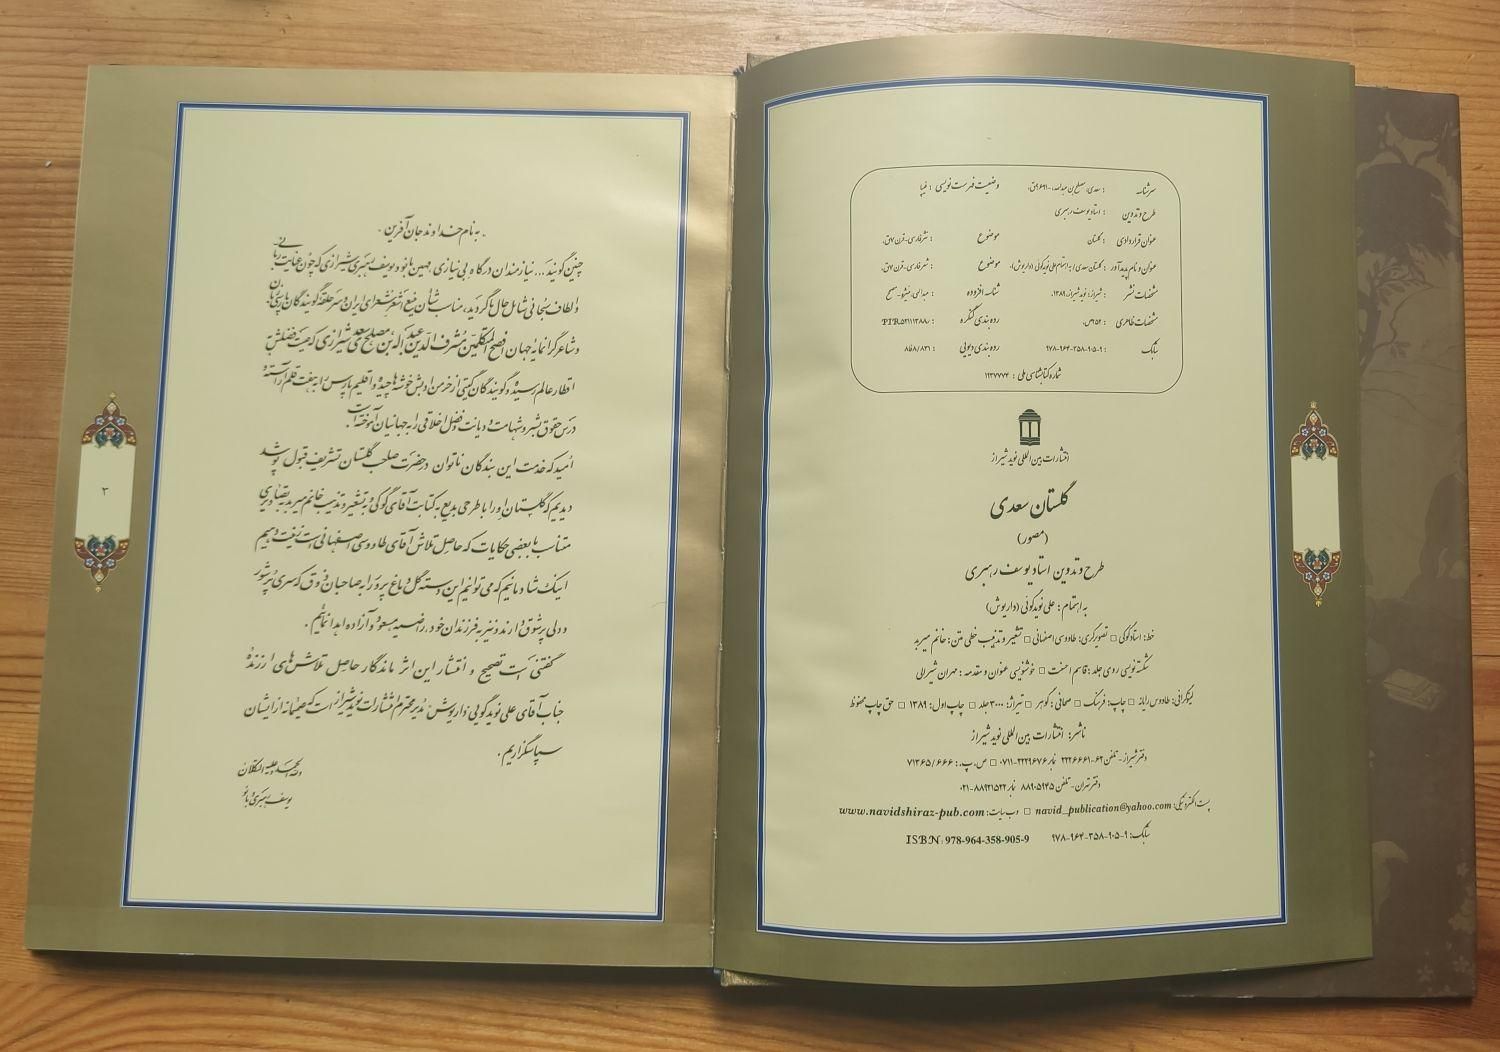 سرشناسه : سعدی، مصلح بن عبدالله، -۶۹۱؟ق.
وضعیت فهرست نویسی : فیپا
طرح و تدوین : استاد یوسف رهبری
عنوان قراردادی : گلستان
موضوع : نثر فارسی - قرن ۷ق.
عنوان و نام پدیدآور : گلستان سعدی / به اهتمام علی نویدگوئی (داریوش).
موضوع : شعر فارسی - قرن ۷ق.
مشخصات نشر : شیراز: نوید شیراز، ۱۳۸۹.
شناسه افزوده :
مشخصات ظاهری : ۲۵۲ص.
رده بندی کنگره : PIR۵۲۱۱ ۱۳۸۸
شابک : ۹۷۸-۹۶۴-۳۵۸-۹۰۵-۹
رده بندی دیویی : ۸فا۸/۸۳۱
شماره کتابشناسی ملی : ۱۱۳۷۷۷۴
انتشارات بین‌المللی نوید شیراز
گلستان سعدی
(مصور)
طرح و تدوین استاد یوسف رهبری
به اهتمام : علی نویدگوئی (داریوش)
خط: استاد کوکی □ تصویرگری: طاووسی اصفهانی □ تشعیر و تذهیب خطی متن: خانم میربد
شکسته نویسی روی جلد : قاسم احسنت □ خوشنویسی عنوان و مقدمه : مهران شیرالی
لیتوگرافی: طاووس رایانه □ چاپ: فرهنگ □ صحافی : گوهر □ تیراژ: ۳۰۰۰ جلد □ چاپ اول: ۱۳۸۹ □ حق چاپ محفوظ
ناشر: انتشارات بین‌المللی نوید شیراز
دفتر شیراز - تلفن ۶۲-۲۲۲۶۶۶۱ نمابر ۲۲۲۹۶۷۶-۰۷۱۱ □ ص.پ.: ۷۱۳۶۵/۶۶۶
دفتر تهران - تلفن ۸۸۹۰۵۹۴۵ نمابر ۸۸۹۲۱۵۲۲-۰۲۱
پست الکترونیکی: navid_publication@yahoo.com □ وب سایت: www.navidshiraz-pub.com
شابک: ۹۷۸-۹۶۴-۳۵۸-۹۰۵-۹ ISBN: 978-964-358-905-9
. به نام خداوند جان آفرین .
چنین گویند... نیازمندان درگاه بی نیازی، همین ما بود و یوسف رهبری شیرازی که چون عنایت ربانی
و الطاف سبحانی شامل حال ما گردید، مناسب شأن منیع اشعر شعرای ایران و سر حلقه گویندگان پارسی زبان
و شاعر گرانمایه جهان افصح المتکلمین مشرف الدین عبدالله بن مصلح سعدی شیرازی که صیت فضلش
اقطار عالم رسیده و گویندگان گیتی از خرمن ادبش خوشه ها چیده و اقلیم پارس را به هفت قلم آراسته
درس حقوق بشر و شهامت و دیانت و فضل اخلاقی را به جهانیان آموخته است.
امید که خدمت این بندگان ناتوان در حضرت صاحب گلستان تشریف قبول پوشد
دیدیم که گلستان او را با طرحی بدیع به کتابت آقای کوکی و تشعیر و تذهیب خانم میربد به تصاویری
متناسب با بعضی حکایات که حاصل تلاش آقای طاووسی اصفهانی است زینت دهیم
اینک شادمانیم که می توانیم این دسته گل و باغ پر ورا به صاحبان ذوق که سری پرشور
و دلی پرشوق دارند و نیز به فرزندان خود، راضیه سعو و آزاده اهدا نمائیم .
گفتنی است تصحیح و انتشار این اثر ماندگار حاصل تلاش های ارزنده
جناب آقای علی نویدگویی "داریوش" مدیر محترم انتشارات نوید شیراز است که صمیمانه از ایشان
سپاسگزاریم .
والحمد لله و علیه التکلان
یوسف رهبری و بانو
۳